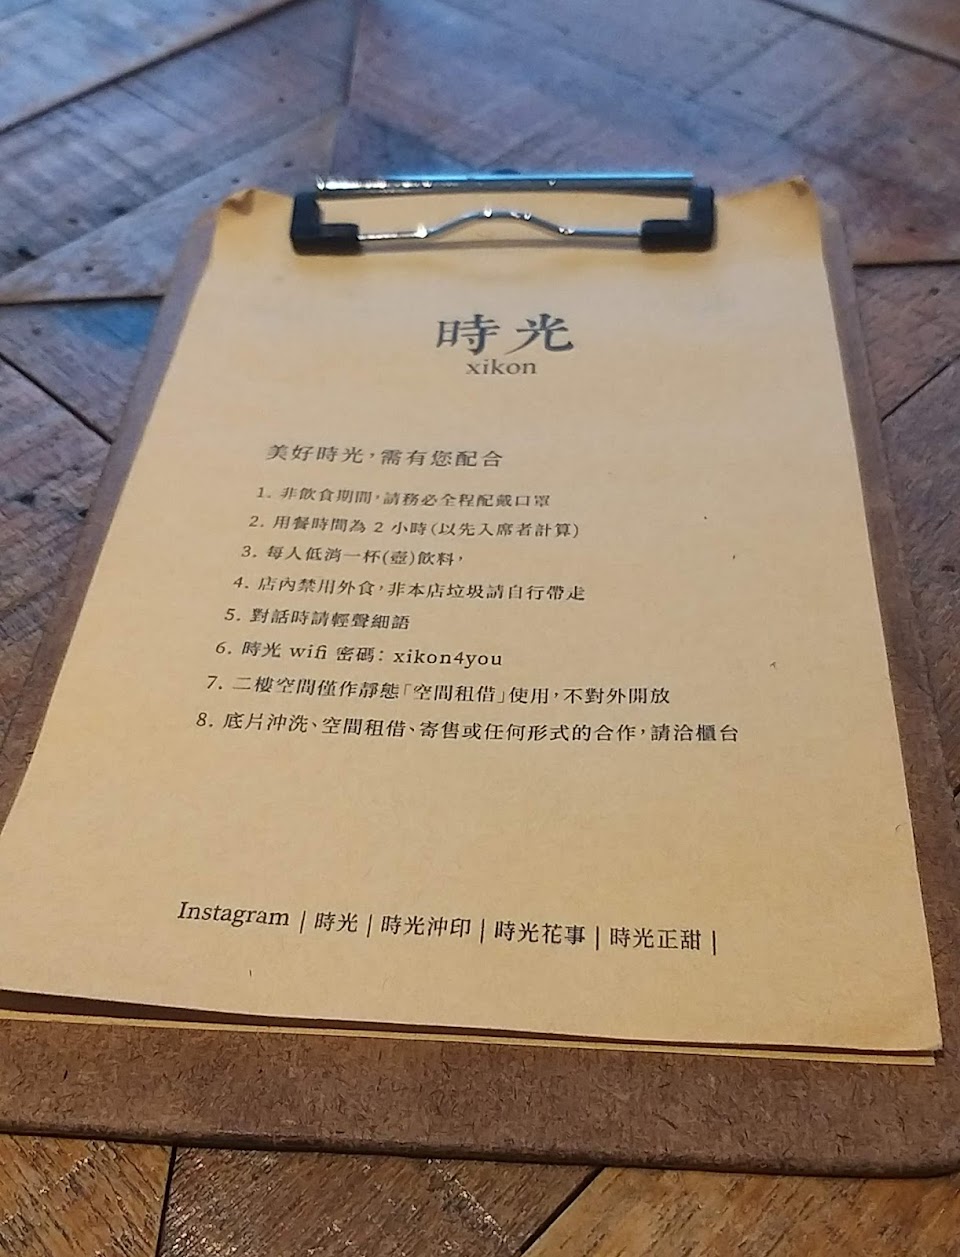 時光
xikon
美好時光,需有您配合
1. 非飲食期間,請務必全程配戴口罩
2. 用餐時間為 2 小時(以先入席者計算)
3. 每人低消一杯(壺)飲料,
4. 店內禁用外食,非本店垃圾請自行帶走
5. 對話時請輕聲細語
6. 時光 wifi 密碼: xikon4you
7. 二樓空間僅作靜態「空間租借」使用,不對外開放
8. 底片沖洗、空間租借、寄售或任何形式的合作,請洽櫃台
Instagram | 時光 | 時光沖印 | 時光花事 | 時光正甜 |